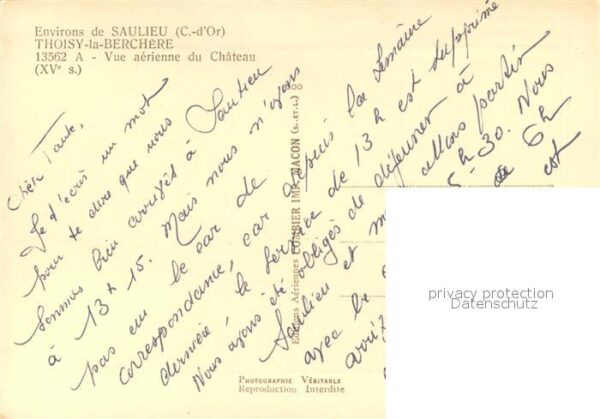 Environs de SAULIEU (C.-d'Or)
THOISY-la-BERCHÈRE
13562 A - Vue aérienne du Château
(XVe s.)
Chère Tante,
Je t'écris un mot
pour te dire que nous
sommes bien arrivés à Saulieu
à 13h 15. Mais nous n'ayons
pas eu le car de
correspondance, car depuis la semaine
dernière, le service de 13h est supprimé
Nous avons été obligés de déjeuner à
Saulieu et allons partir
avec le 5h 30. Nous
de 6h
est
Editions Aériennes COMBIER IMP. MACON (S.-ET-L.)
PHOTOGRAPHIE VÉRITABLE
Reproduction Interdite
privacy protection
Datenschutz